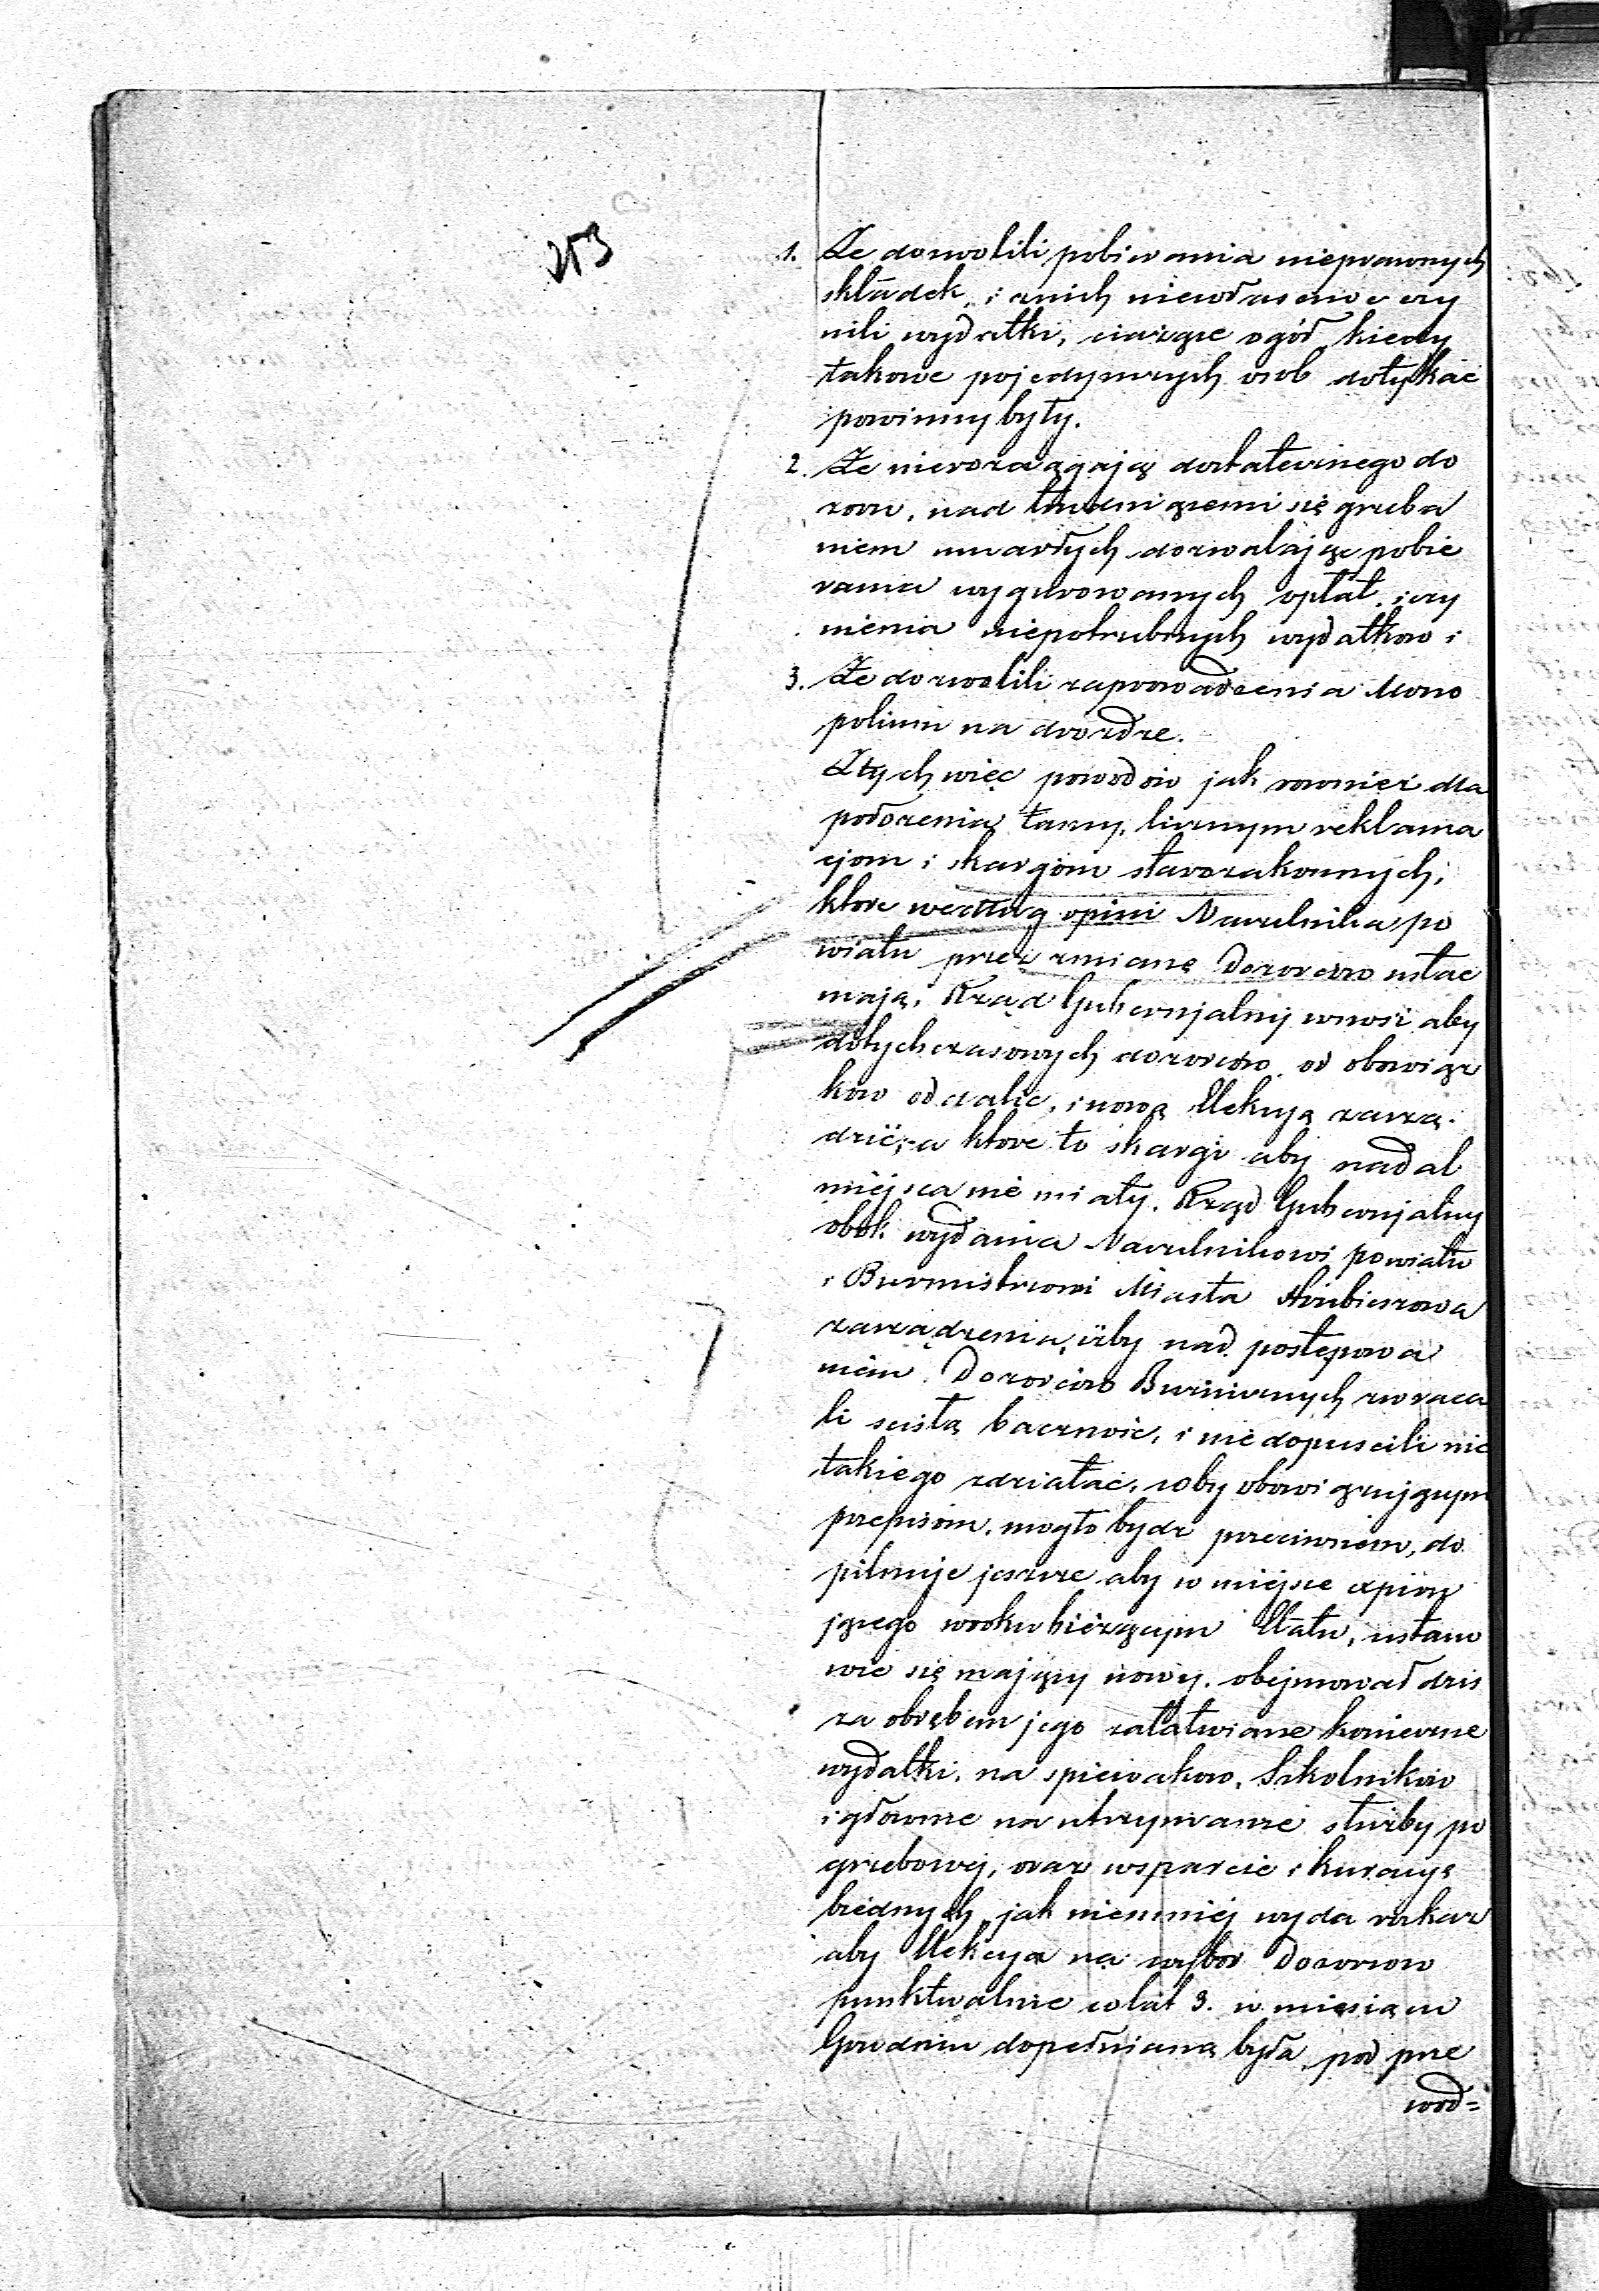 253
1. Że dozwolili pobierania nieprawnych
składek, i z nich niewłaściwe czy
nili wydatki, ciążące ogół kiedy
takowe pojedynczych osob dotykać
powinny były.
2. Że nierozciągają dostatecznego do
zoru, nad trudniącemi się grzeba
niem umarłych dozwalając pobie
rania wygurowanych opłat, i czy
nienia niepotrzebnych wydatkow i
3. Że dozwolili zaprowadzenia Mono
polium na drożdże.
Z tych więc powodow jak rownież dla
położenia tamy, licznym reklama
cjom i skargom starozakonnych,
ktore według opini Naczelnika po
wiatu przez zmianę Dozorcow ustac
mają, Rząd Gubernjalny wnosi aby
dotychczasowych dozorcow od obowiąz
kow oddalic, i nową Elekcyą zarzą-
dzić, a ktore to skargi aby nadal
miejsca nie miały. Rząd Gubernjalny
obok wydania Naczelnikowi powiatu
i Burmistrzowi Miasta Hrubieszowa
zarządzenia, iżby nad postępowa
niem Dozorcow Bużnicznych zwraca
li scisłą bacznośc, i nie dopuscili nic
takiego zdziałać, coby obowiązującym
przepisom, mogło bydz przeciwnem, do
pilnuje jeszcze aby w miejsce expiru
jącego w roku bieżącym Etatu, ustano
wic się mający nowy, obejmował dzis
za obrębem jego załatwiane konieczne
wydatki, na spiewakow, Szkolnikow
i głownie na utrzymanie służby po
grzebowej, oraz wsparcie i kuracyę
biednych, jak niemniej wyda rozkaz
aby Elekcya na wybor Dozorcow
punktualnie co lat 3. w miesiącu
Grudniu dopełnianą była, pod prze
wod=